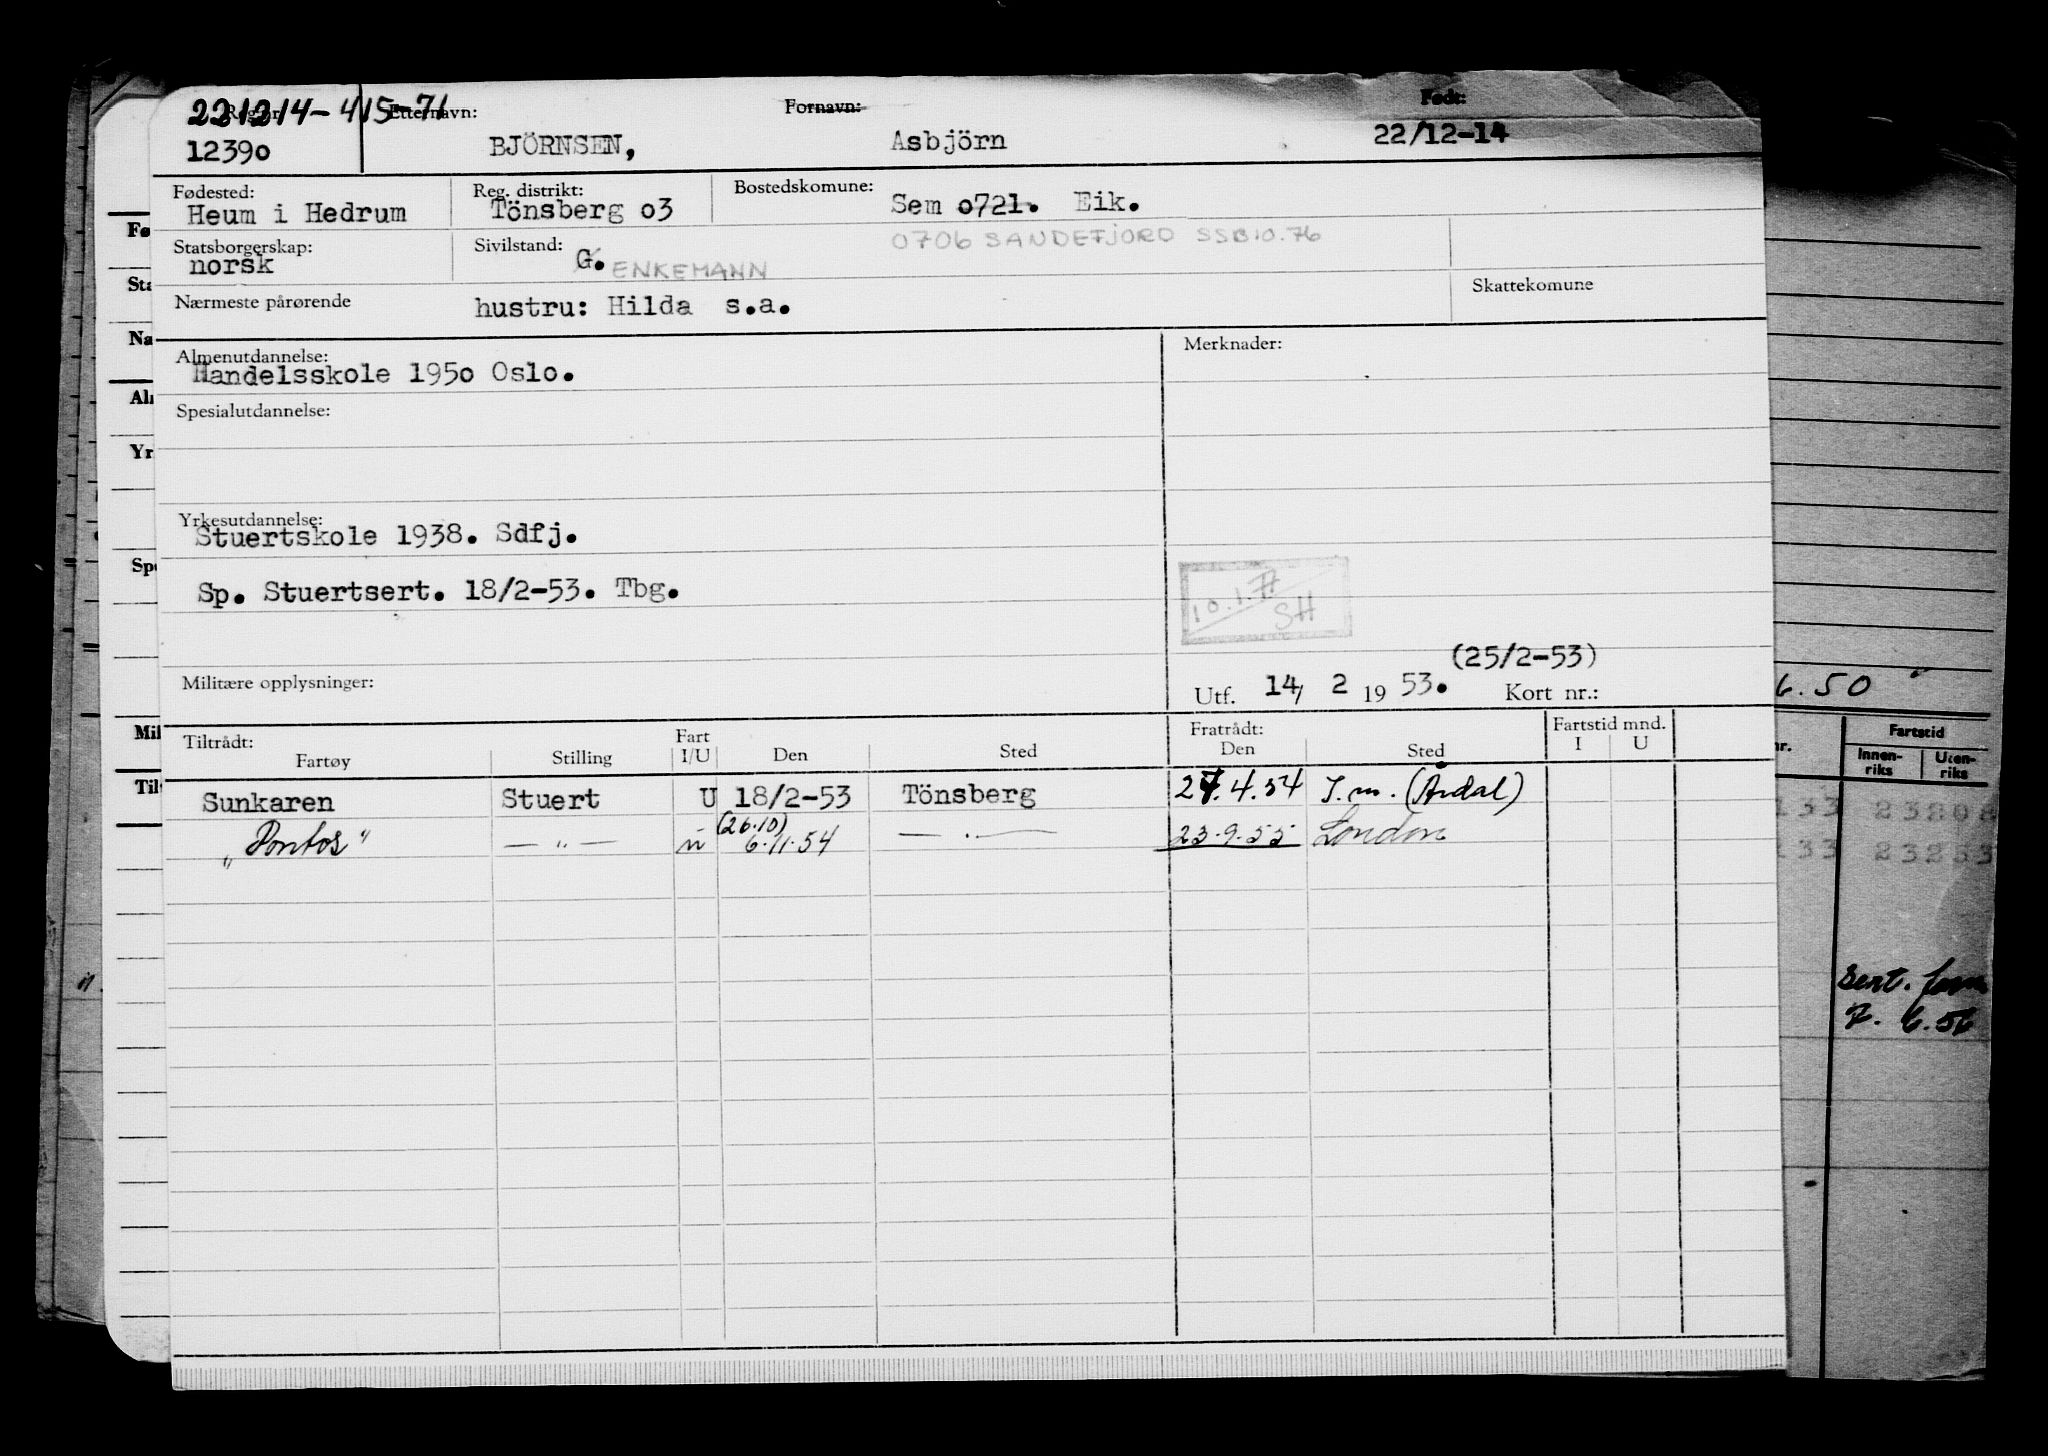 221214-415-71
Reg. nr. Etternavn: Fornavn: Født:
12390 BJÖRNSEN, Asbjörn 22/12-14
Fødested: Reg. distrikt: Bostedskomune:
Heum i Hedrum Tönsberg o3 Sem o721. Eik.
0706 SANDEFJORD SSB 10.76
Statsborgerskap: Sivilstand:
norsk G. ENKEMANN
Nærmeste pårørende hustru: Hilda s.a. Skattekomune
Almenutdannelse: Merknader:
Handelsskole 195o Oslo.
Spesialutdannelse:
Yrkesutdannelse:
Stuertskole 1938. Sdfj.
Sp. Stuertsert. 18/2-53. Tbg.
10.1.77
SH
(25/2-53)
Militære opplysninger: Utf. 14/ 2 19 53. Kort nr.:
Tiltrådt: Fratrådt: Fartstid mnd.
Fartøy Stilling Fart I/U Den Sted Den Sted I U
Sunkaren Stuert U 18/2-53 Tönsberg 27.4.54 S.m. (Årdal)
(26.10)
"Pontos" — " — u 6.11.54 — . — 23.9.55 London
Fø
Sta
Na
Aln
Yr
Spe
Mil
Tilt
6.50
nr. Fartstid
Innen-riks Uten-riks
133 23208
133 23253
Sert.
7. 6.56